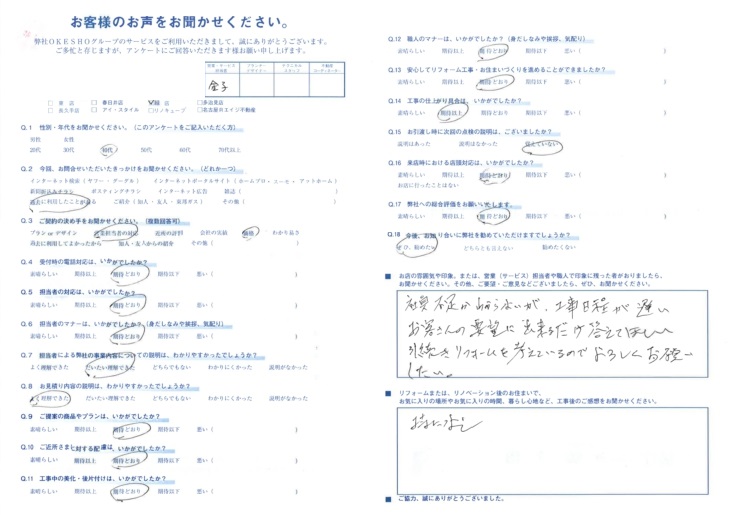 お客様のお声をお聞かせください。
弊社OKESHOグループのサービスをご利用いただきまして、誠にありがとうございます。
ご多忙と存じますが、アンケートにご回答いただきます様お願い申し上げます。
金子
□ 春日井店
□ 多治見店
□ アイ・スタイル □リノキューブ □名古屋のエイジ不動産
Q.1 性別・年代をお聞かせください。(このアンケートをご記入いただく方)
男性 女性
20代 30代 40代 50代 60代 70代以上
Q.2 今回、お問合せいただいたきっかけをお聞かせください。(どれか一つ)
インターネット検索(ヤフー・グーグル) インターネットポータルサイト(ホームプロ・スーモ・アットホーム)
新聞折込みチラシ ポスティングチラシ インターネット広告 雑誌( )
過去に利用したことがある ご紹介(知人・友人・東邦ガス) その他( )
Q.3 ご契約の決め手をお聞かせください。(複数回答可)
プラン or デザイン 営業担当者の対応 近所の評判 会社の実績 価格 わかり易さ
過去に利用してよかったから 知人・友人からの紹介 その他( )
Q.4 受付時の電話対応は、いかがでしたか?
素晴らしい 期待以上 期待どおり 期待以下 悪い( )
Q.5 担当者の対応は、いかがでしたか?
素晴らしい 期待以上 期待どおり 期待以下 悪い( )
Q.6 担当者のマナーは、いかがでしたか?(身だしなみや挨拶、気配り)
素晴らしい 期待以上 期待どおり 期待以下 悪い( )
Q.7 担当者による弊社の事業内容についての説明は、わかりやすかったでしょうか?
よく理解できた だいたい理解できた どちらでもない わかりにくかった 説明がなかった
Q.8 お見積り内容の説明は、わかりやすかったでしょうか?
よく理解できた だいたい理解できた どちらでもない わかりにくかった 説明がなかった
Q.9 ご提案の商品やプランは、いかがでしたか?
素晴らしい 期待以上 期待どおり 期待以下 悪い( )
Q.10 ご近所さまに対する配慮は、いかがでしたか?
素晴らしい 期待以上 期待どおり 期待以下 悪い( )
Q.11 工事中の美化・後片付けは、いかがでしたか?
素晴らしい 期待以上 期待どおり 期待以下 悪い( )
Q.12 職人のマナーは、いかがでしたか?(身だしなみや挨拶、気配り)
素晴らしい 期待以上 期待どおり 期待以下 悪い( )
Q.13 安心してリフォーム工事・お住まいづくりを進めることができましたか?
素晴らしい 期待以上 期待どおり 期待以下 悪い( )
Q.14 工事の仕上がり具合は、いかがでしたか?
素晴らしい 期待以上 期待どおり 期待以下 悪い( )
Q.15 お引渡し時に次回の点検の説明は、ございましたか?
説明はあった 説明はなかった 覚えていない
Q.16 来店時における店頭対応は、いかがでしたか?
素晴らしい 期待以上 期待どおり 期待以下 悪い( )
お店に行ったことはない
Q.17 弊社への総合評価をお願いいたします。
素晴らしい 期待以上 期待どおり 期待以下 悪い( )
Q.18 今後、お知り合いに弊社を勧めていただけますでしょうか?
ぜひ、勧めたい どちらとも言えない 勧めたくない
■ お店の雰囲気や印象、または、営業(サービス)担当者や職人で印象に残った者がおりましたら、
お聞かせください。その他、ご要望・ご意見などございましたら、ぜひ、お聞かせください。
社員不足かわからないが、工事日程が遅い
お客さんの要望に出来るだけ答えてほしい
引続きリフォームを考えているのでよろしくお願い
したい。
■ リフォームまたは、リノベーション後のお住まいで、
お気に入りの場所やお気に入りの時間、暮らし心地など、工事後のご感想をお聞かせください。
特になし
■ ご協力、誠にありがとうございました。